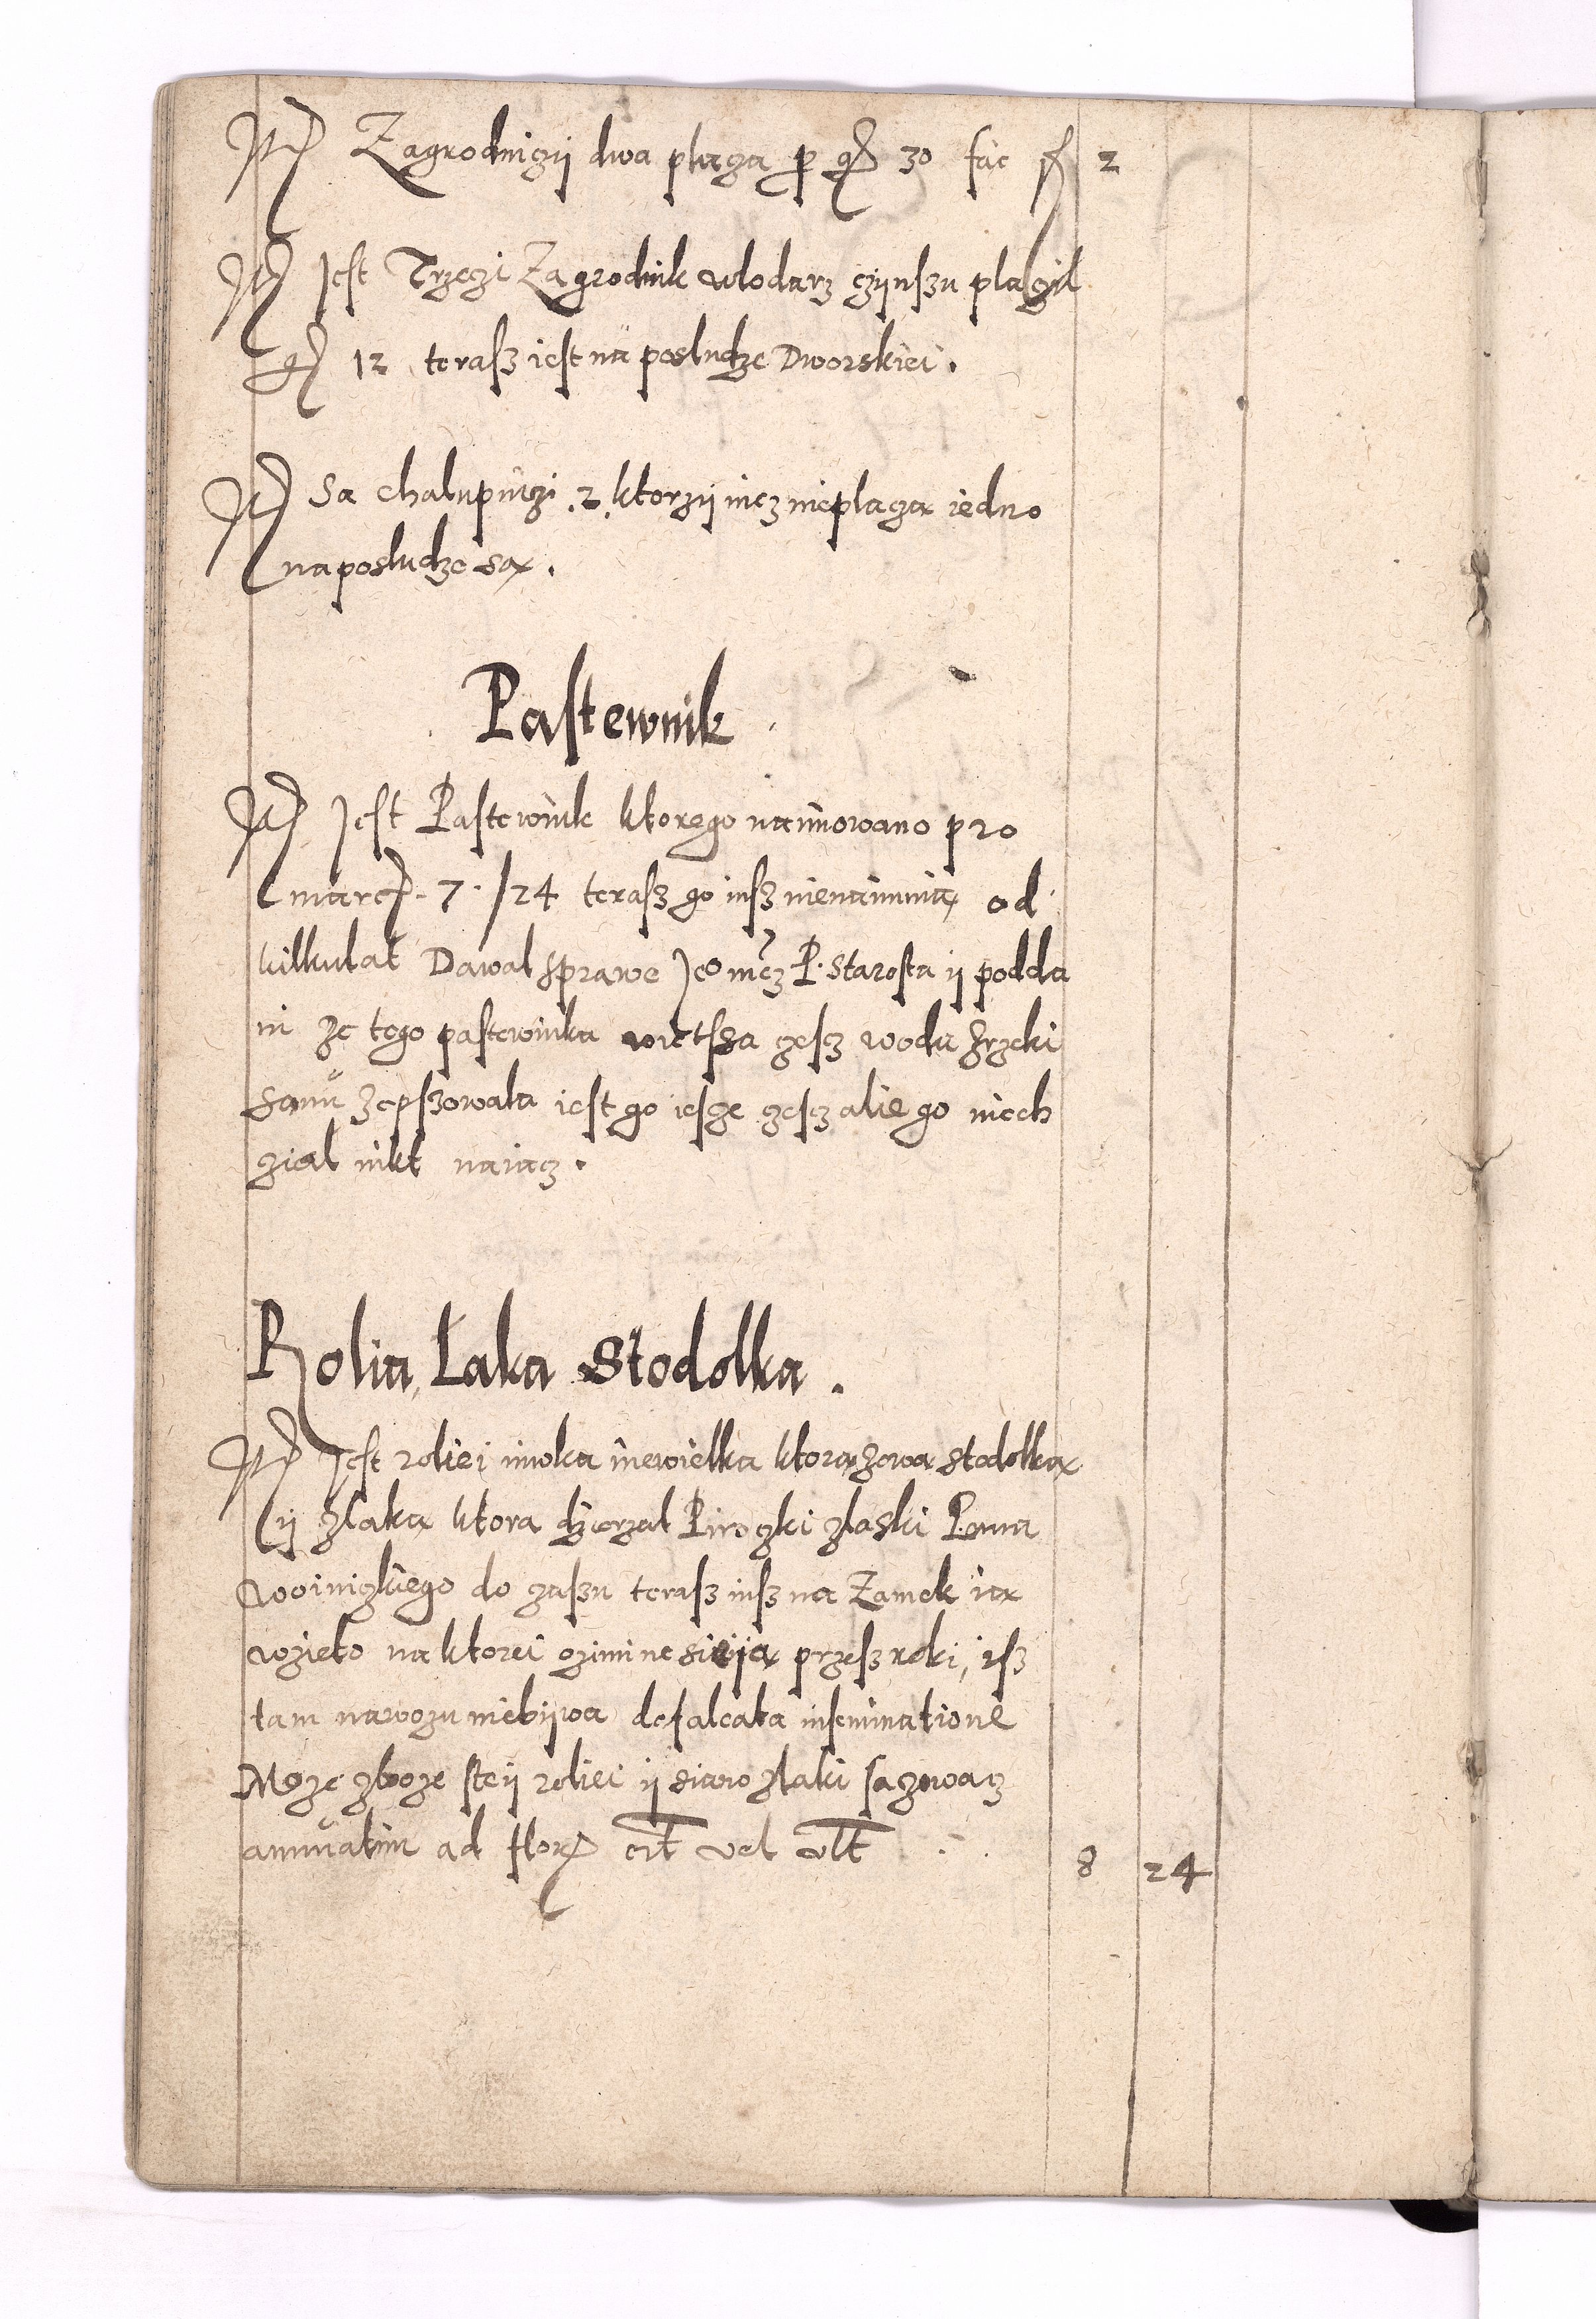 Itē Zagrodniczÿ dwa placza ꝑ gr 30 fac fl 2
Itē Jest Trzeczi Zagrodnik wlodarz czÿnszu placzil
gr 12 terasz iest na posludze Dworskiei.
Itē Sa chalupniczi .2. ktorzÿ nicz nieplacza iedno
na posludze sa.
Pastewnik
Itē Jest Pastewnik ktorego naimowano pro
marcs. 7. /24 terasz go insz nienaimuia od
kilkulat Dawal sprawe Jeo mcz P. Starosta ÿ podda
ni ze tego pastewnika wietsza czesz woda zrzeki
Sanu zepszowala iest go iescze czesz alie go niech
czial nikt naiacz.
Rolia, Laka Stodolka.
Itē Jest roliei niwka niewielka ktora zowa Stodolka
ÿ zlaka ktora dzierzal Piroczki zlaski Pana
Woiniczkiego do czaszu terasz insz na Zamek ia
wzieto na ktorei oziminesieija przesz roki, isz
tam nawozu niebÿwa defalcata inseminatione
Moze zboze steÿ roliei ÿ siano zlaki saczowacz
annuatim ad flor crt vel vlt 8 24